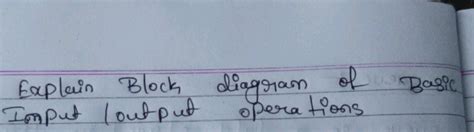 Explain Block diagram of Basic
Input / output operations